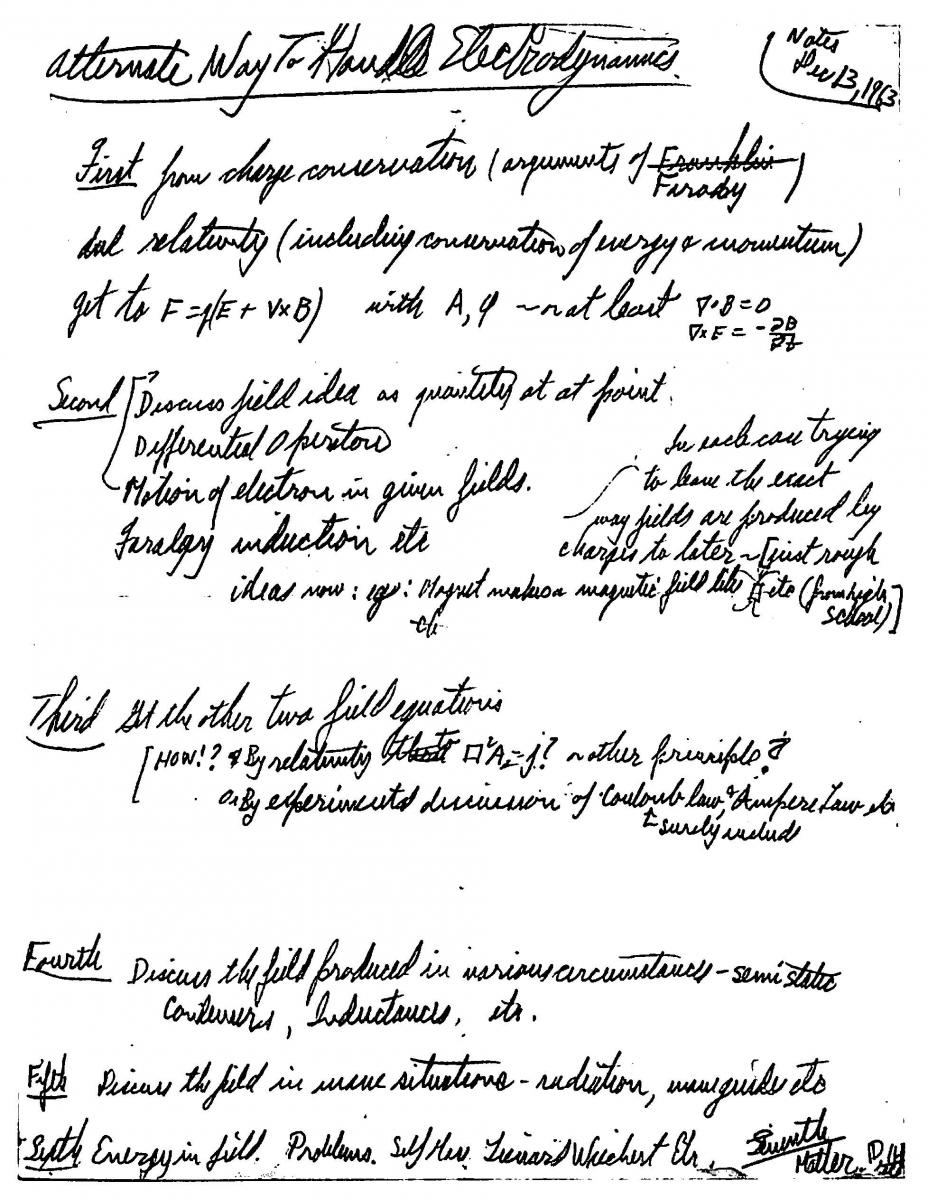 Alternate Way To Handle Electrodynamics.
Notes
Dec 13, 1963
First from charge conservation (arguments of Franklin
Faraday)
and relativity (including conservation of energy & momentum)
get to F=q(E + V×B) with A, φ ~ or at least ∇·B=0
∇×E = -∂B/∂t
Second [? Discuss field idea as quantity at at point.
Differential Operators
Motion of electron in given fields.
Faraday induction etc
In each case trying
to leave the exact
way fields are produced by
charges to later ~ [just rough
ideas now: eg: Magnet makes a magnetic field like etc (from high
school)]
Third Get the other two field equations
[HOW!? By relativity □²A = j? or other principle?
Or By experiments discussion of Coulomb law, & Ampere Law etc.
↑ surely include
Fourth Discuss the field produced in various circumstances - semi static
Condensers, Inductances, etc.
Fifth Discuss the field in wave situations - radiation, waveguide etc
Sixth Energy in field. Problems. Self Mass. Lienard Wiechert Etc.
Seventh
Matter.